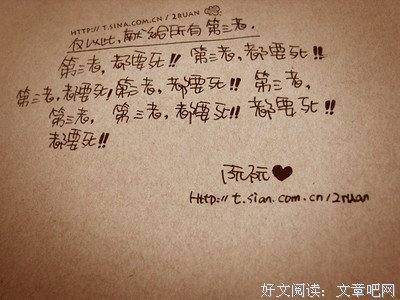 HTTP://T.SINA.COM.CN/2RUAN
仅以此,献给所有第三者.
第三者,都要死!! 第三者,都要死!!
第三者,都要死!第三者,都要死!! 第三者,
第三者, 第三者,都要死!! 都要死!!
都要死!!
阮阮❤
Http://t.sian.com.cn/2ruan
好文阅读:文章吧网